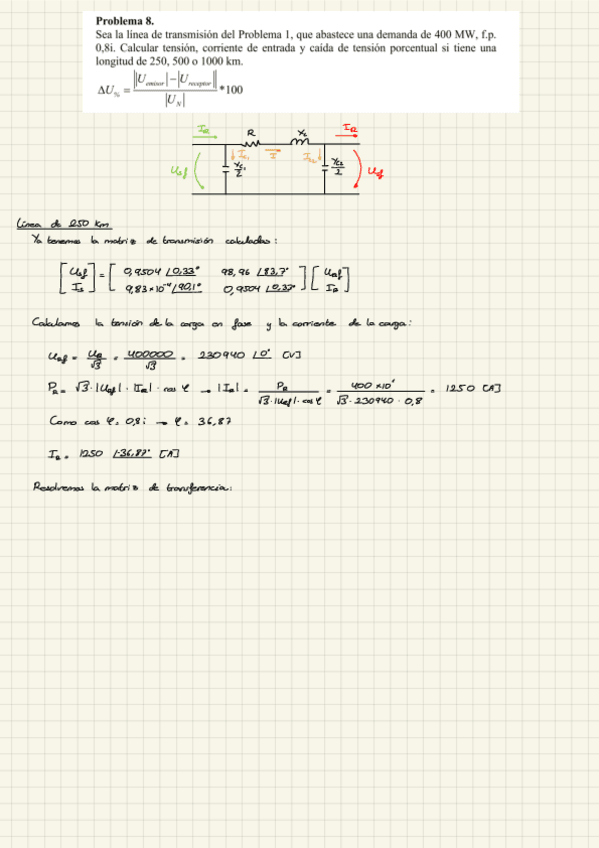 Problema 8.
Sea la línea de transmisión del Problema 1, que abastece una demanda de 400 MW, f.p.
0,8i. Calcular tensión, corriente de entrada y caída de tensión porcentual si tiene una
longitud de 250, 500 o 1000 km.
ΔU% = ||U emisor| − |U receptor|| / |U N| *100
R XL IR
I
Línea de 250 km
Ya tenemos la matriz de transmisión calculadas:
[Usf Is] = [0,9504 ∠0,33° 98,96 ∠83,7° 9,83×10⁻⁴ ∠90,1° 0,9504 ∠0,33°] [URf IR]
Calculamos la tensión de la carga en fase y la corriente de la carga:
URf = UR/√3 = 400000/√3 = 230940 ∠0° [V]
PR = √3·|URf|·|IR|·cos φ → |IR| = PR/(√3·|URf|·cos φ) = 400×10⁶/(√3·230940·0,8) = 1250 [A]
Como cos φ = 0,8i → φ = 36,87
IR = 1250 ∠-36,87° [A]
Resolvemos la matriz de transferencia: